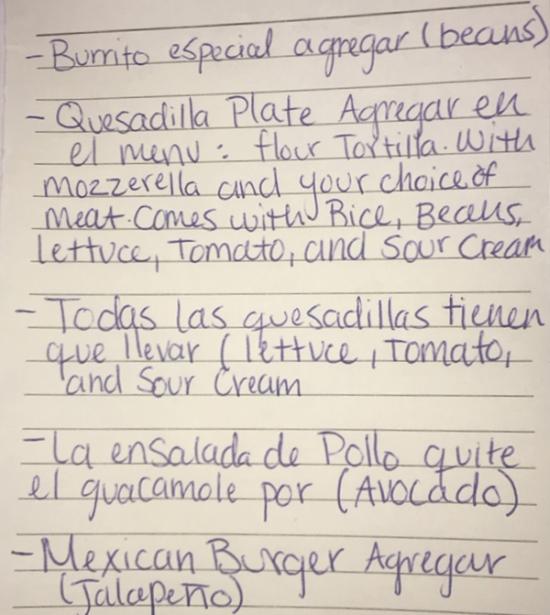 - Burrito especial agregar (beans)
- Quesadilla Plate Agregar en
el menu : flour Tortilla. With
mozzerella and your choice of
meat. Comes with Rice, Beans,
lettuce, Tomato, and Sour Cream
- Todas las quesadillas tienen
que llevar ( lettuce , Tomato,
and Sour Cream
- La ensalada de Pollo quite
el guacamole por (Avocado)
- Mexican Burger Agregar
(Jalapeño)